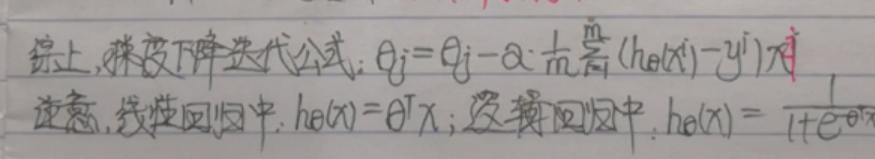 综上,梯度下降迭代公式: θj=θj-α·1/m Σ(i=1→m) (hθ(xⁱ)-yⁱ)xⁱ
注意,线性回归中: hθ(x)=θᵀx; 逻辑回归中: hθ(x)=1/(1+e^θᵀx)